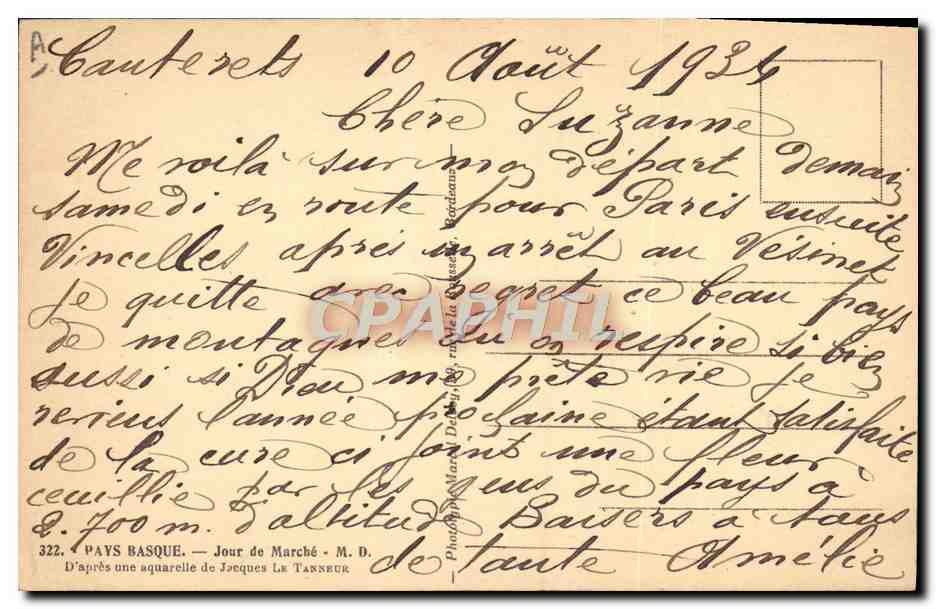 A
Cauterets 10 Août 1934
Chère Suzanne
Me voilà sur mon départ demain
samedi en route pour Paris ensuite
Vincelles après un arrêt au Vésinet
je quitte avec regret ce beau pays
de montagnes ou on respire si bien
aussi si Dieu me prête vie je
reviens l'année prochaine étant satisfaite
de la cure ci joint une fleur
ceuillie par les gens du pays à
2.700 m. d'altitude Baisers à tous
de tante Amélie
322. - PAYS BASQUE. — Jour de Marché - M. D.
D'après une aquarelle de Jacques LE TANNEUR
Phototypie Marcel Delboy, rue de la Bordeaux
CPAPHIL